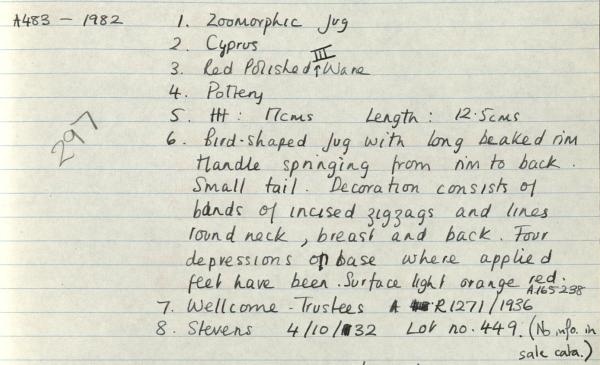 A483 - 1982
1. Zoomorphic Jug
2. Cyprus
3. Red Polished III Ware
4. Pottery
5. Ht: 17cms Length: 12.5cms
297
6. Bird-shaped Jug with long beaked rim
Handle springing from rim to back.
Small tail. Decoration consists of
bands of incised zigzags and lines
round neck, breast and back. Four
depressions on base where applied
feet have been. Surface light orange red.
A165238
7. Wellcome - Trustees A R1271/1936
8. Stevens 4/10/32 Lot no. 449. (No info. in
sale cata.)